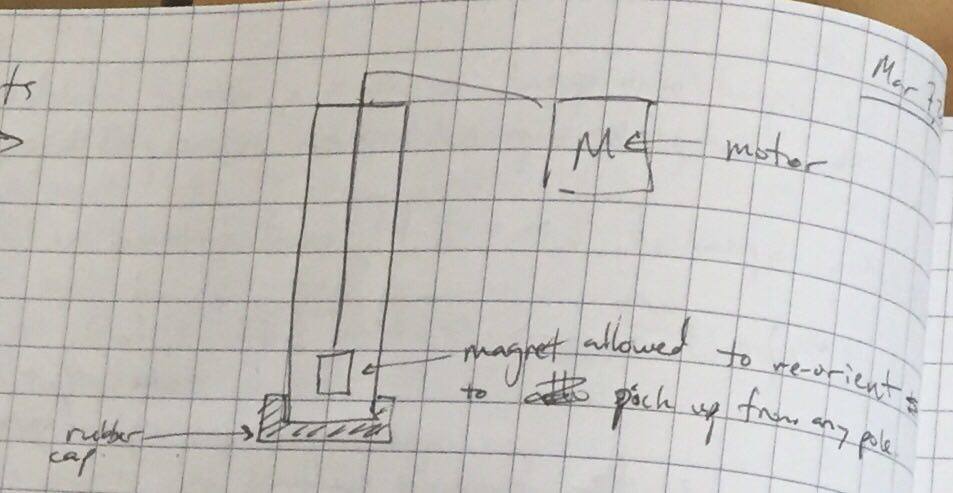 ts
Mar
M
motor
magnet allowed to re-orient
to pick up from any pole
rubber
cap